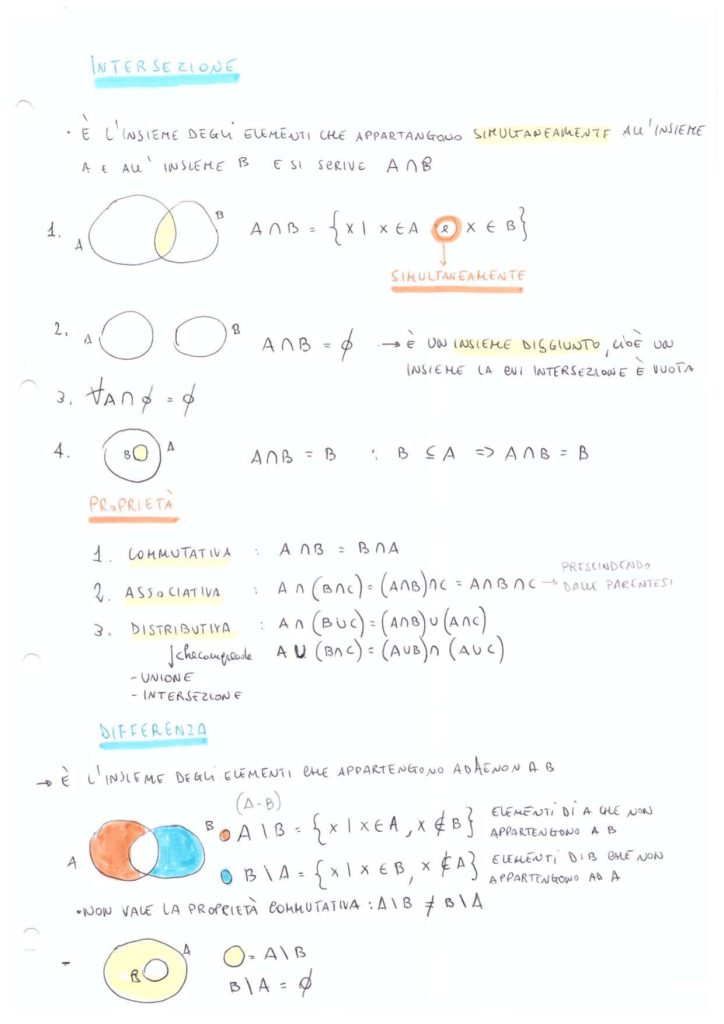 INTERSEZIONE
• È L'INSIEME DEGLI ELEMENTI CHE APPARTANGONO SIMULTANEAMENTE ALL'INSIEME
A E ALL' INSIEME B E SI SCRIVE A ∩ B
1. A B A ∩ B = {x | x ∈ A e x ∈ B}
SIMULTANEAMENTE
2. A B A ∩ B = ∅ → È UN INSIEME DISGIUNTO, CIOÈ UN
INSIEME LA CUI INTERSEZIONE È VUOTA
3. ∀A ∩ ∅ = ∅
4. B A A ∩ B = B ∵ B ⊆ A => A ∩ B = B
PROPRIETÀ
1. COMMUTATIVA : A ∩ B = B ∩ A
2. ASSOCIATIVA : A ∩ (B ∩ C) = (A ∩ B) ∩ C = A ∩ B ∩ C → PRESCINDENDO
DALLE PARENTESI
3. DISTRIBUTIVA : A ∩ (B ∪ C) = (A ∩ B) ∪ (A ∩ C)
↓ che comprende A ∪ (B ∩ C) = (A ∪ B) ∩ (A ∪ C)
- UNIONE
- INTERSEZIONE
DIFFERENZA
→ È L'INSIEME DEGLI ELEMENTI CHE APPARTENGONO AD A E NON A B
(A - B)
A B A \ B = {x | x ∈ A, x ∉ B} ELEMENTI DI A CHE NON
APPARTENGONO A B
B \ A = {x | x ∈ B, x ∉ A} ELEMENTI DI B CHE NON
APPARTENGONO AD A
• NON VALE LA PROPRIETÀ COMMUTATIVA : A \ B ≠ B \ A
- B A = A \ B
B \ A = ∅